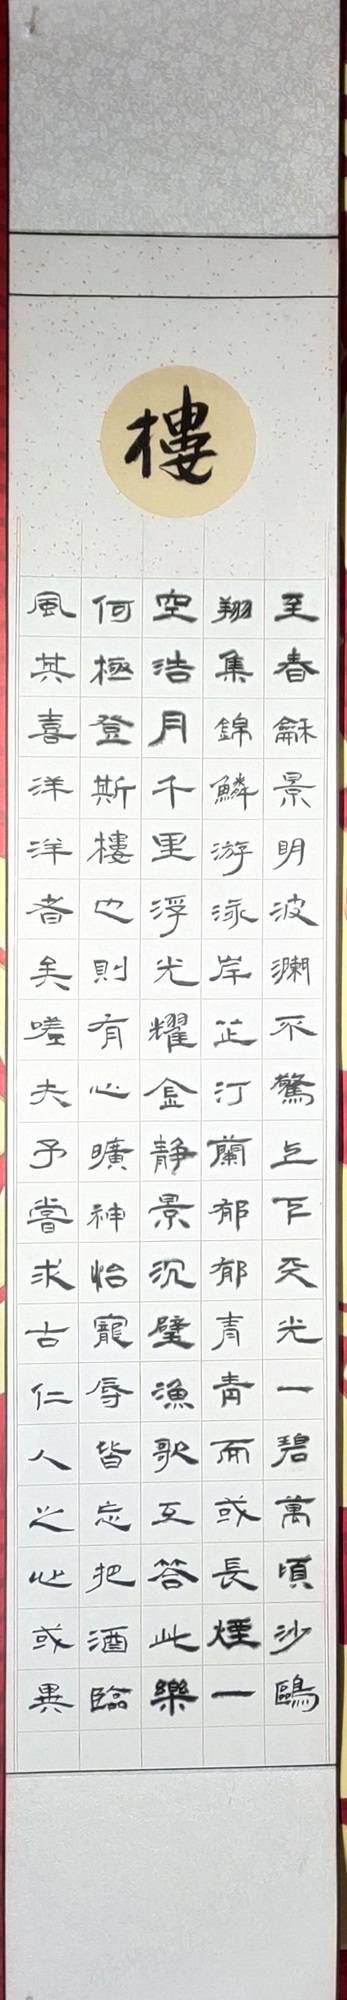 樓
至春龢景明波瀾不驚上下天光一碧萬頃沙鷗
翔集錦鱗游泳岸芷汀蘭郁郁青青而或長煙一
空浩月千里浮光耀金静景沉璧漁歌互答此樂
何極登斯樓也則有心曠神怡寵辱皆忘把酒臨
風其喜洋洋者矣嗟夫予嘗求古仁人之心或異